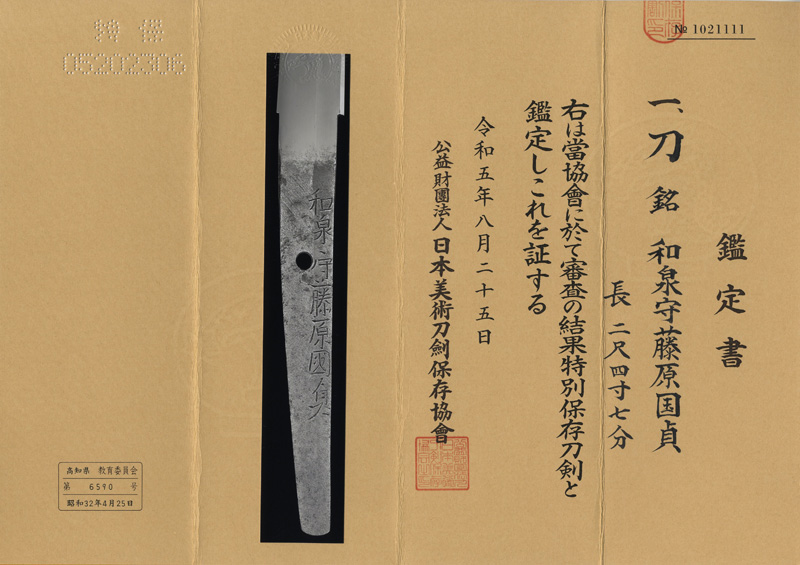 № 1021111
鑑定書
一、刀 銘 和泉守藤原国貞
長 二尺四寸七分
右は當協會に於て審査の結果特別保存刀剣と
鑑定しこれを証する
令和五年八月二十五日
公益財團法人日本美術刀劍保存協會
和泉守藤原國貞
特保
05202306
高知県 教育委員会
第 6590 号
昭和32年4月25日